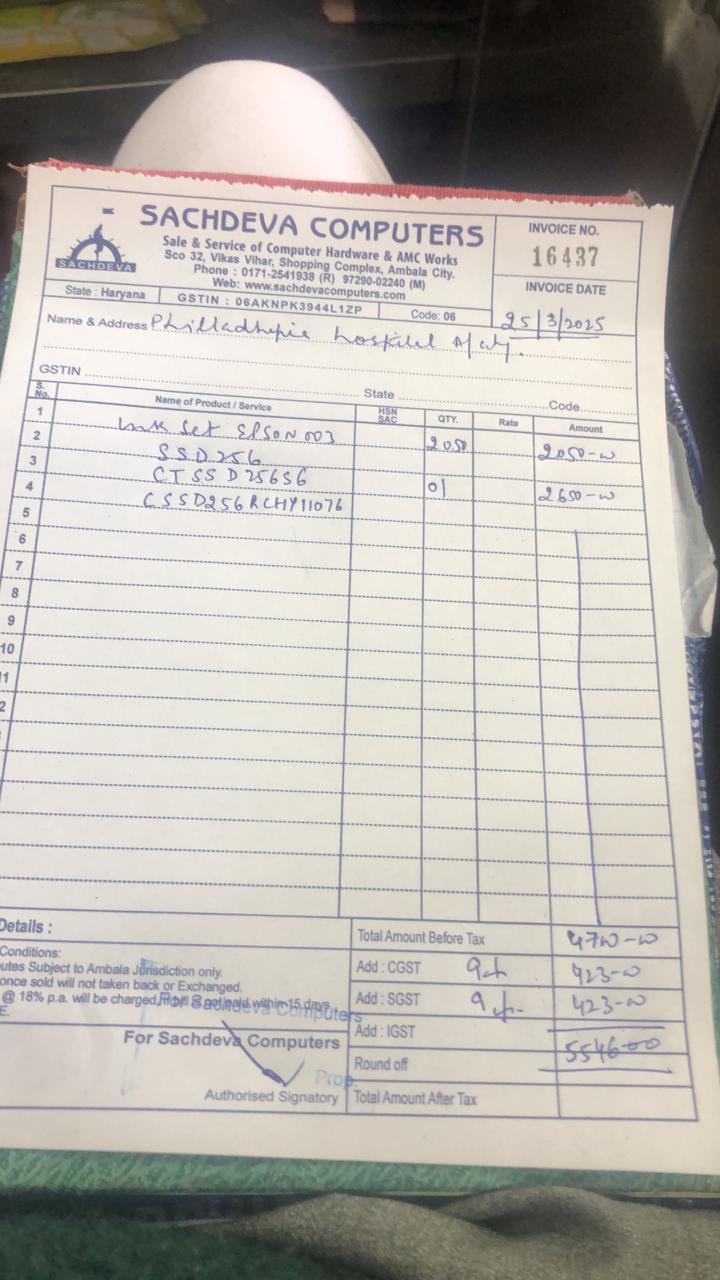 SACHDEVA COMPUTERS
Sale & Service of Computer Hardware & AMC Works
Sco 32, Vikas Vihar, Shopping Complex, Ambala City.
Phone : 0171-2541938 (R) 97290-02240 (M)
Web: www.sachdevacomputers.com
SACHDEVA
State : Haryana
GSTIN : 06AKNPK3944L1ZP
Code: 06
INVOICE NO.
16437
INVOICE DATE
25/3/2025
Name & Address Philladhepie hospital
GSTIN
State
Code
S. No.
Name of Product / Service
HSN SAC
QTY.
Rate
Amount
1
Ink Set EPSON 003 2050 2050-00
2
SSD 256
3
CTSSD256S6 01 2650-00
4
CSSD256RCHY11076
5
6
7
8
9
10
11
2
Details :
Conditions:
utes Subject to Ambala Jurisdiction only.
once sold will not taken back or Exchanged.
@ 18% p.a. will be charged, if bill is not paid within 15 days
E.
For Sachdeva Computers
For Sachdeva Computers
Prop.
Authorised Signatory
Total Amount Before Tax 4700-00
Add : CGST 9% 423-00
Add : SGST 9% 423-00
Add : IGST
5546-00
Round off
Total Amount After Tax